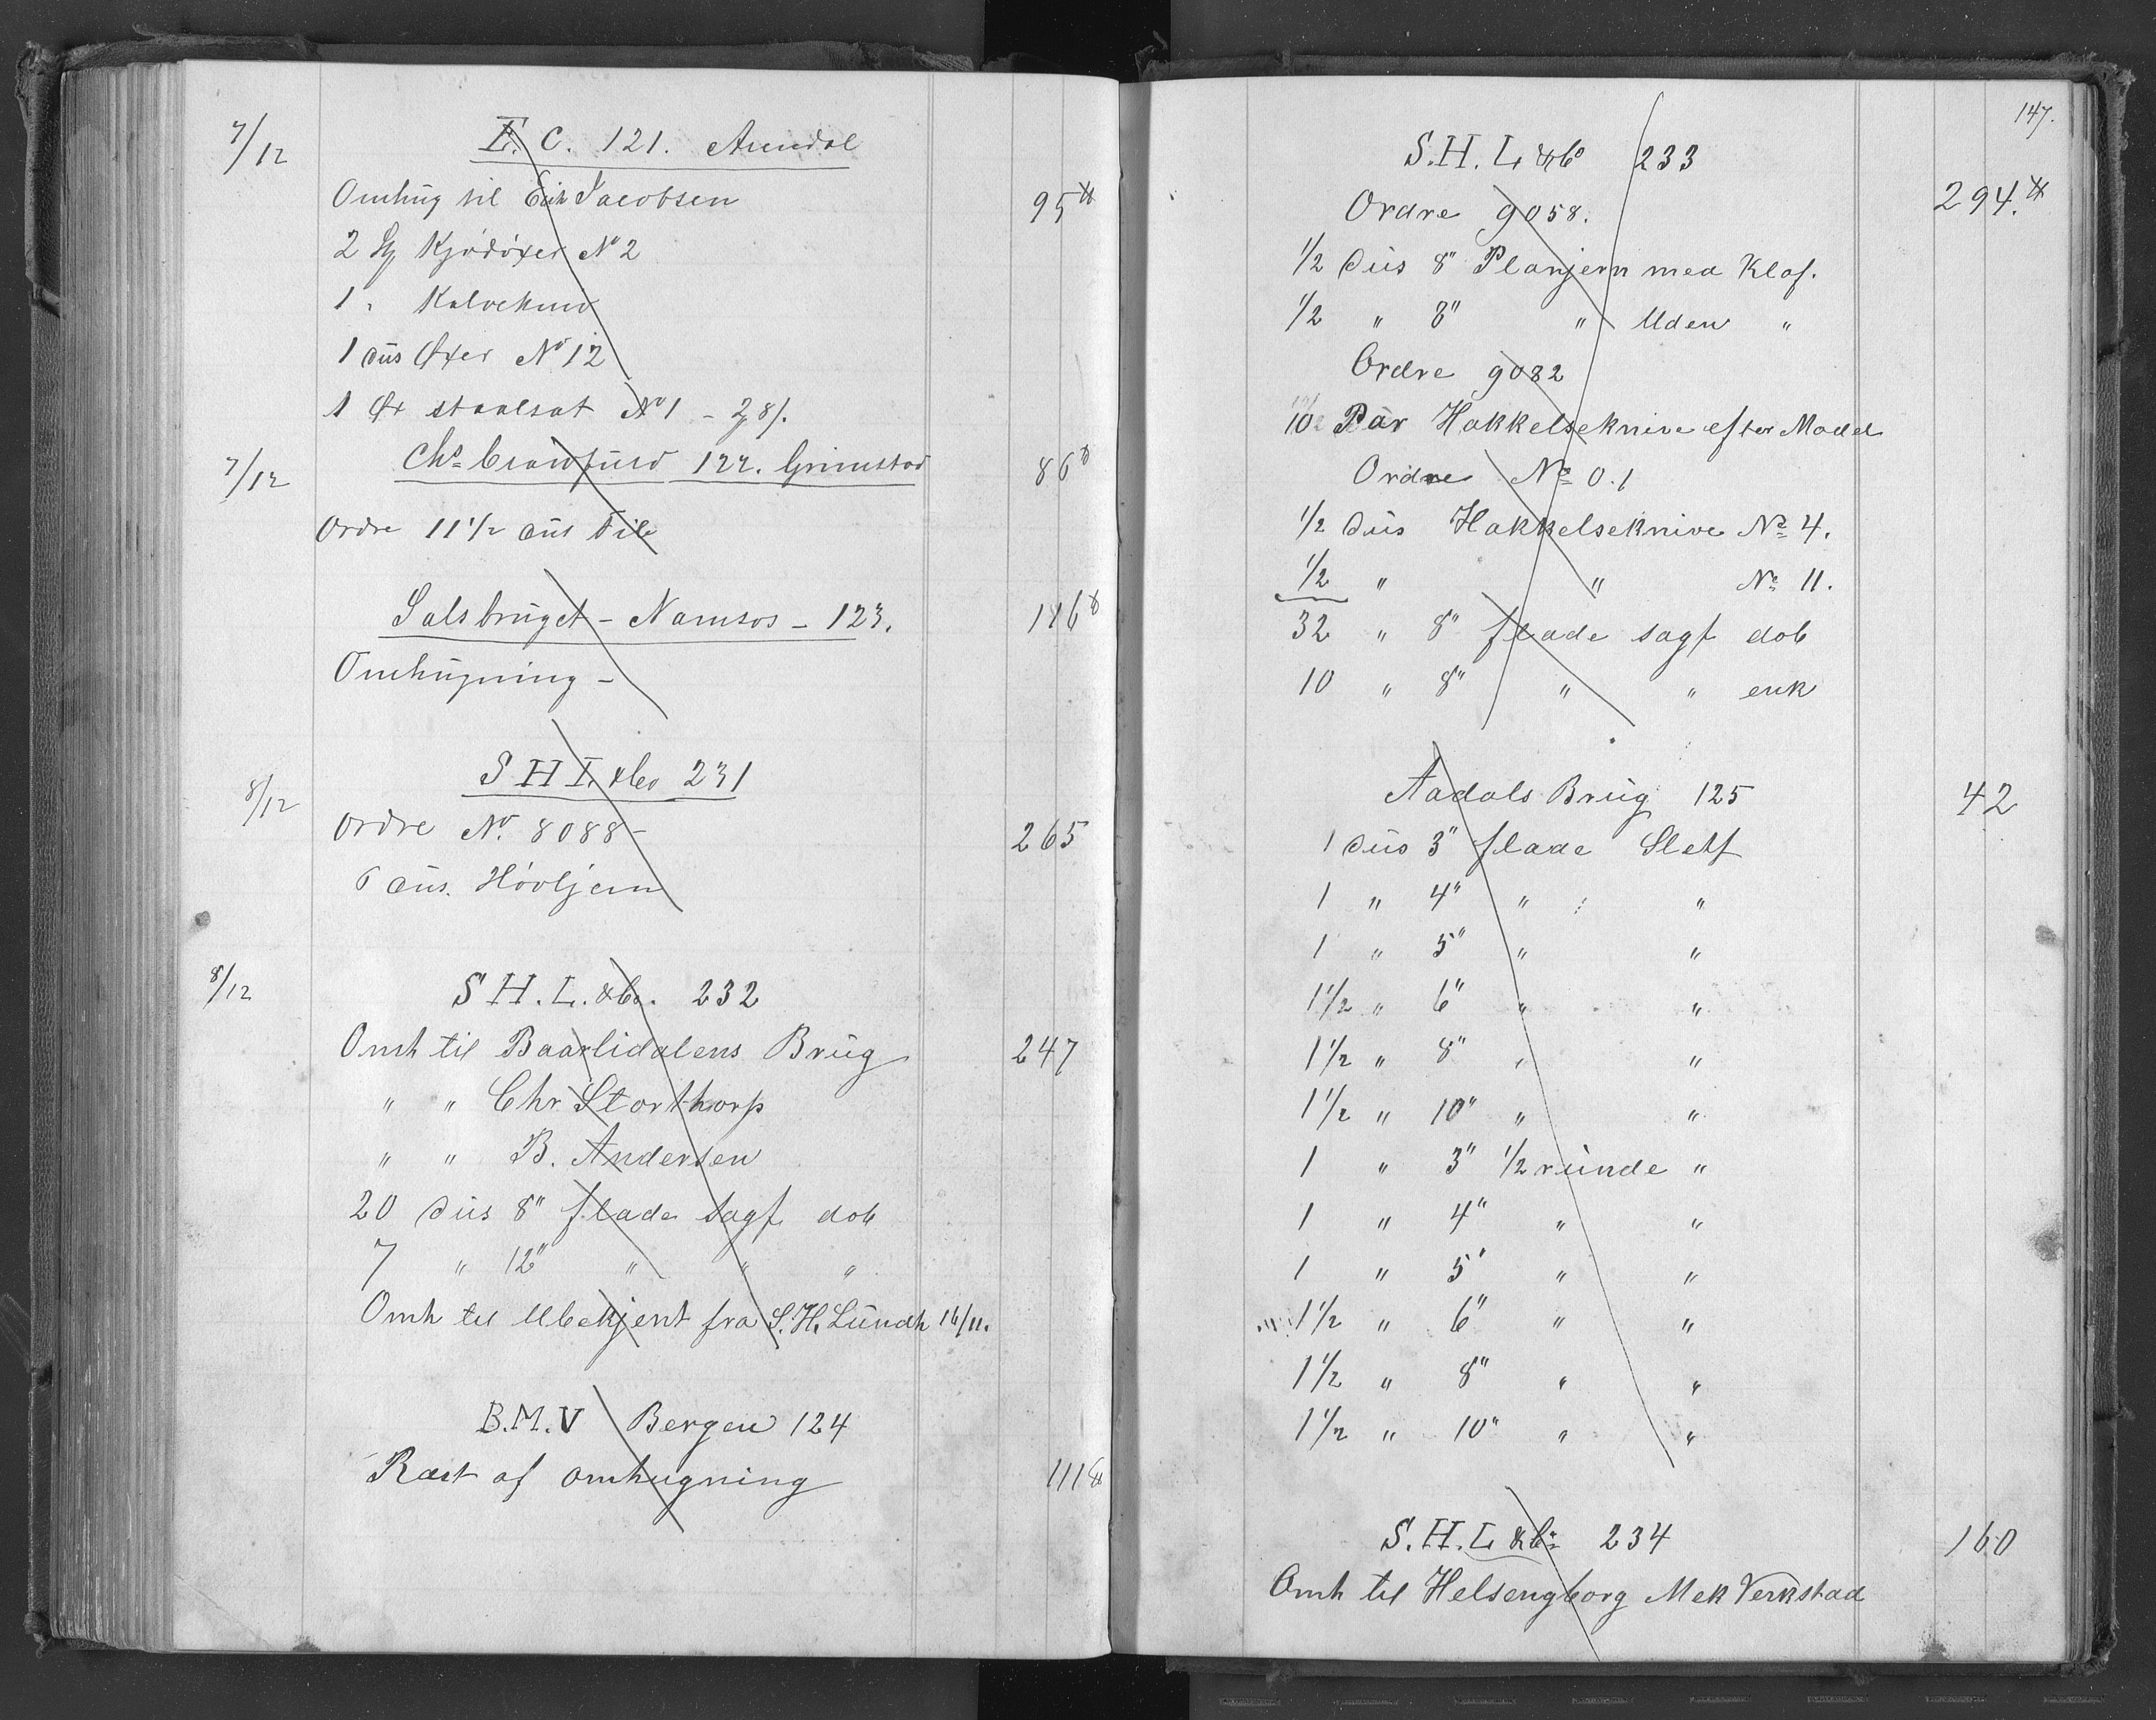 7/12 E. C. 121. Arendal
Omhug til Erik Jacobsen 95 ℔
2 St Kjødøxer No 2
1 " Kalvekniv
1 dus Øxer No 12
1 Øx staalsat No 1 -
7/12 Chs Crawfurd 122. Grimstad 86 ℔
Ordre 11 1/2 dus File
Salsbruget - Namsos - 123. 116 ℔
Omhugning -
8/12 S H L & Co 231
Ordre No. 8088 - 265
6 dus. Høvljern
8/12 S H. L. & Co. 232
Omh til Baarlidalens Brug 247
" " Chr Storthorp
" " B. Andersen
20 dus 8" flade sagf dob
7 " 12" " " "
Omh til Ubekjent fra S. H. Lundh 16/11.
B. M. V Bergen 124
Rest af omhugning 111 ℔
147.
S. H. L & Co 233
Ordre 9058. 294. ℔
1/2 dus 8" Planjern med Klaf.
1/2 " 8" " Uden "
Ordre 9082
10 Par Hakkelseknive efter Model
Ordre No 0.1
1/2 dus Hakkelseknive No 4.
1/2 " " No 11.
32 " 8" flade sagf dob
10 " 8" " " enk
Aadals Brug 125 42
1 dus 3" flade Sletf
1 " 4" " "
1 " 5" " "
1 1/2 " 6" " "
1 1/2 " 8" " "
1 1/2 " 10" " "
1 " 3" 1/2 runde "
1 " 4" " "
1 " 5" " "
1 1/2 " 6" " "
1 1/2 " 8" " "
1 1/2 " 10" " "
S. H. L & Co 234 160
Omh til Helsengborg Mek Verkstad